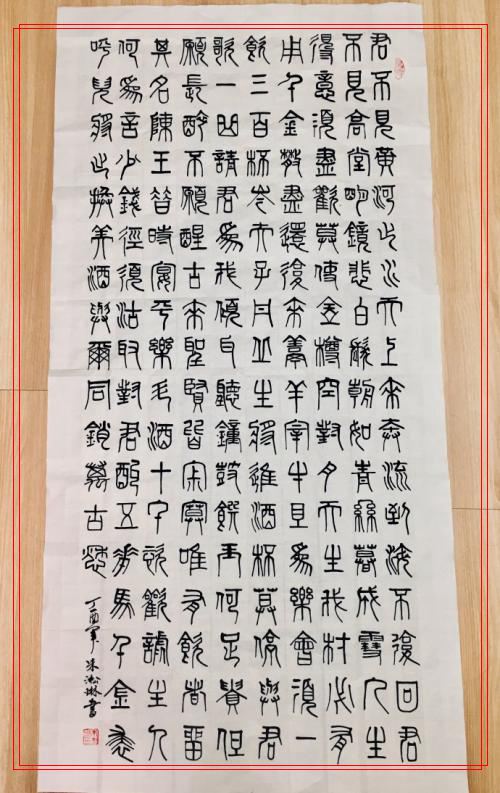 君不見黃河之水天上來奔流到海不復回君
不見高堂明鏡悲白髮朝如青絲暮成雪人生
得意須盡歡莫使金樽空對月天生我材必有
用千金散盡還復來烹羊宰牛且爲樂會須一
飲三百杯岑夫子丹丘生將進酒杯莫停與君
歌一曲請君爲我傾耳聽鐘鼓饌玉何足貴但
願長醉不願醒古來聖賢皆寂寞唯有飲者留
其名陳王昔時宴平樂斗酒十千恣歡謔主人
何爲言少錢徑須沽取對君酌五花馬千金裘
呼兒將出換美酒與爾同銷萬古愁
丁酉年 書